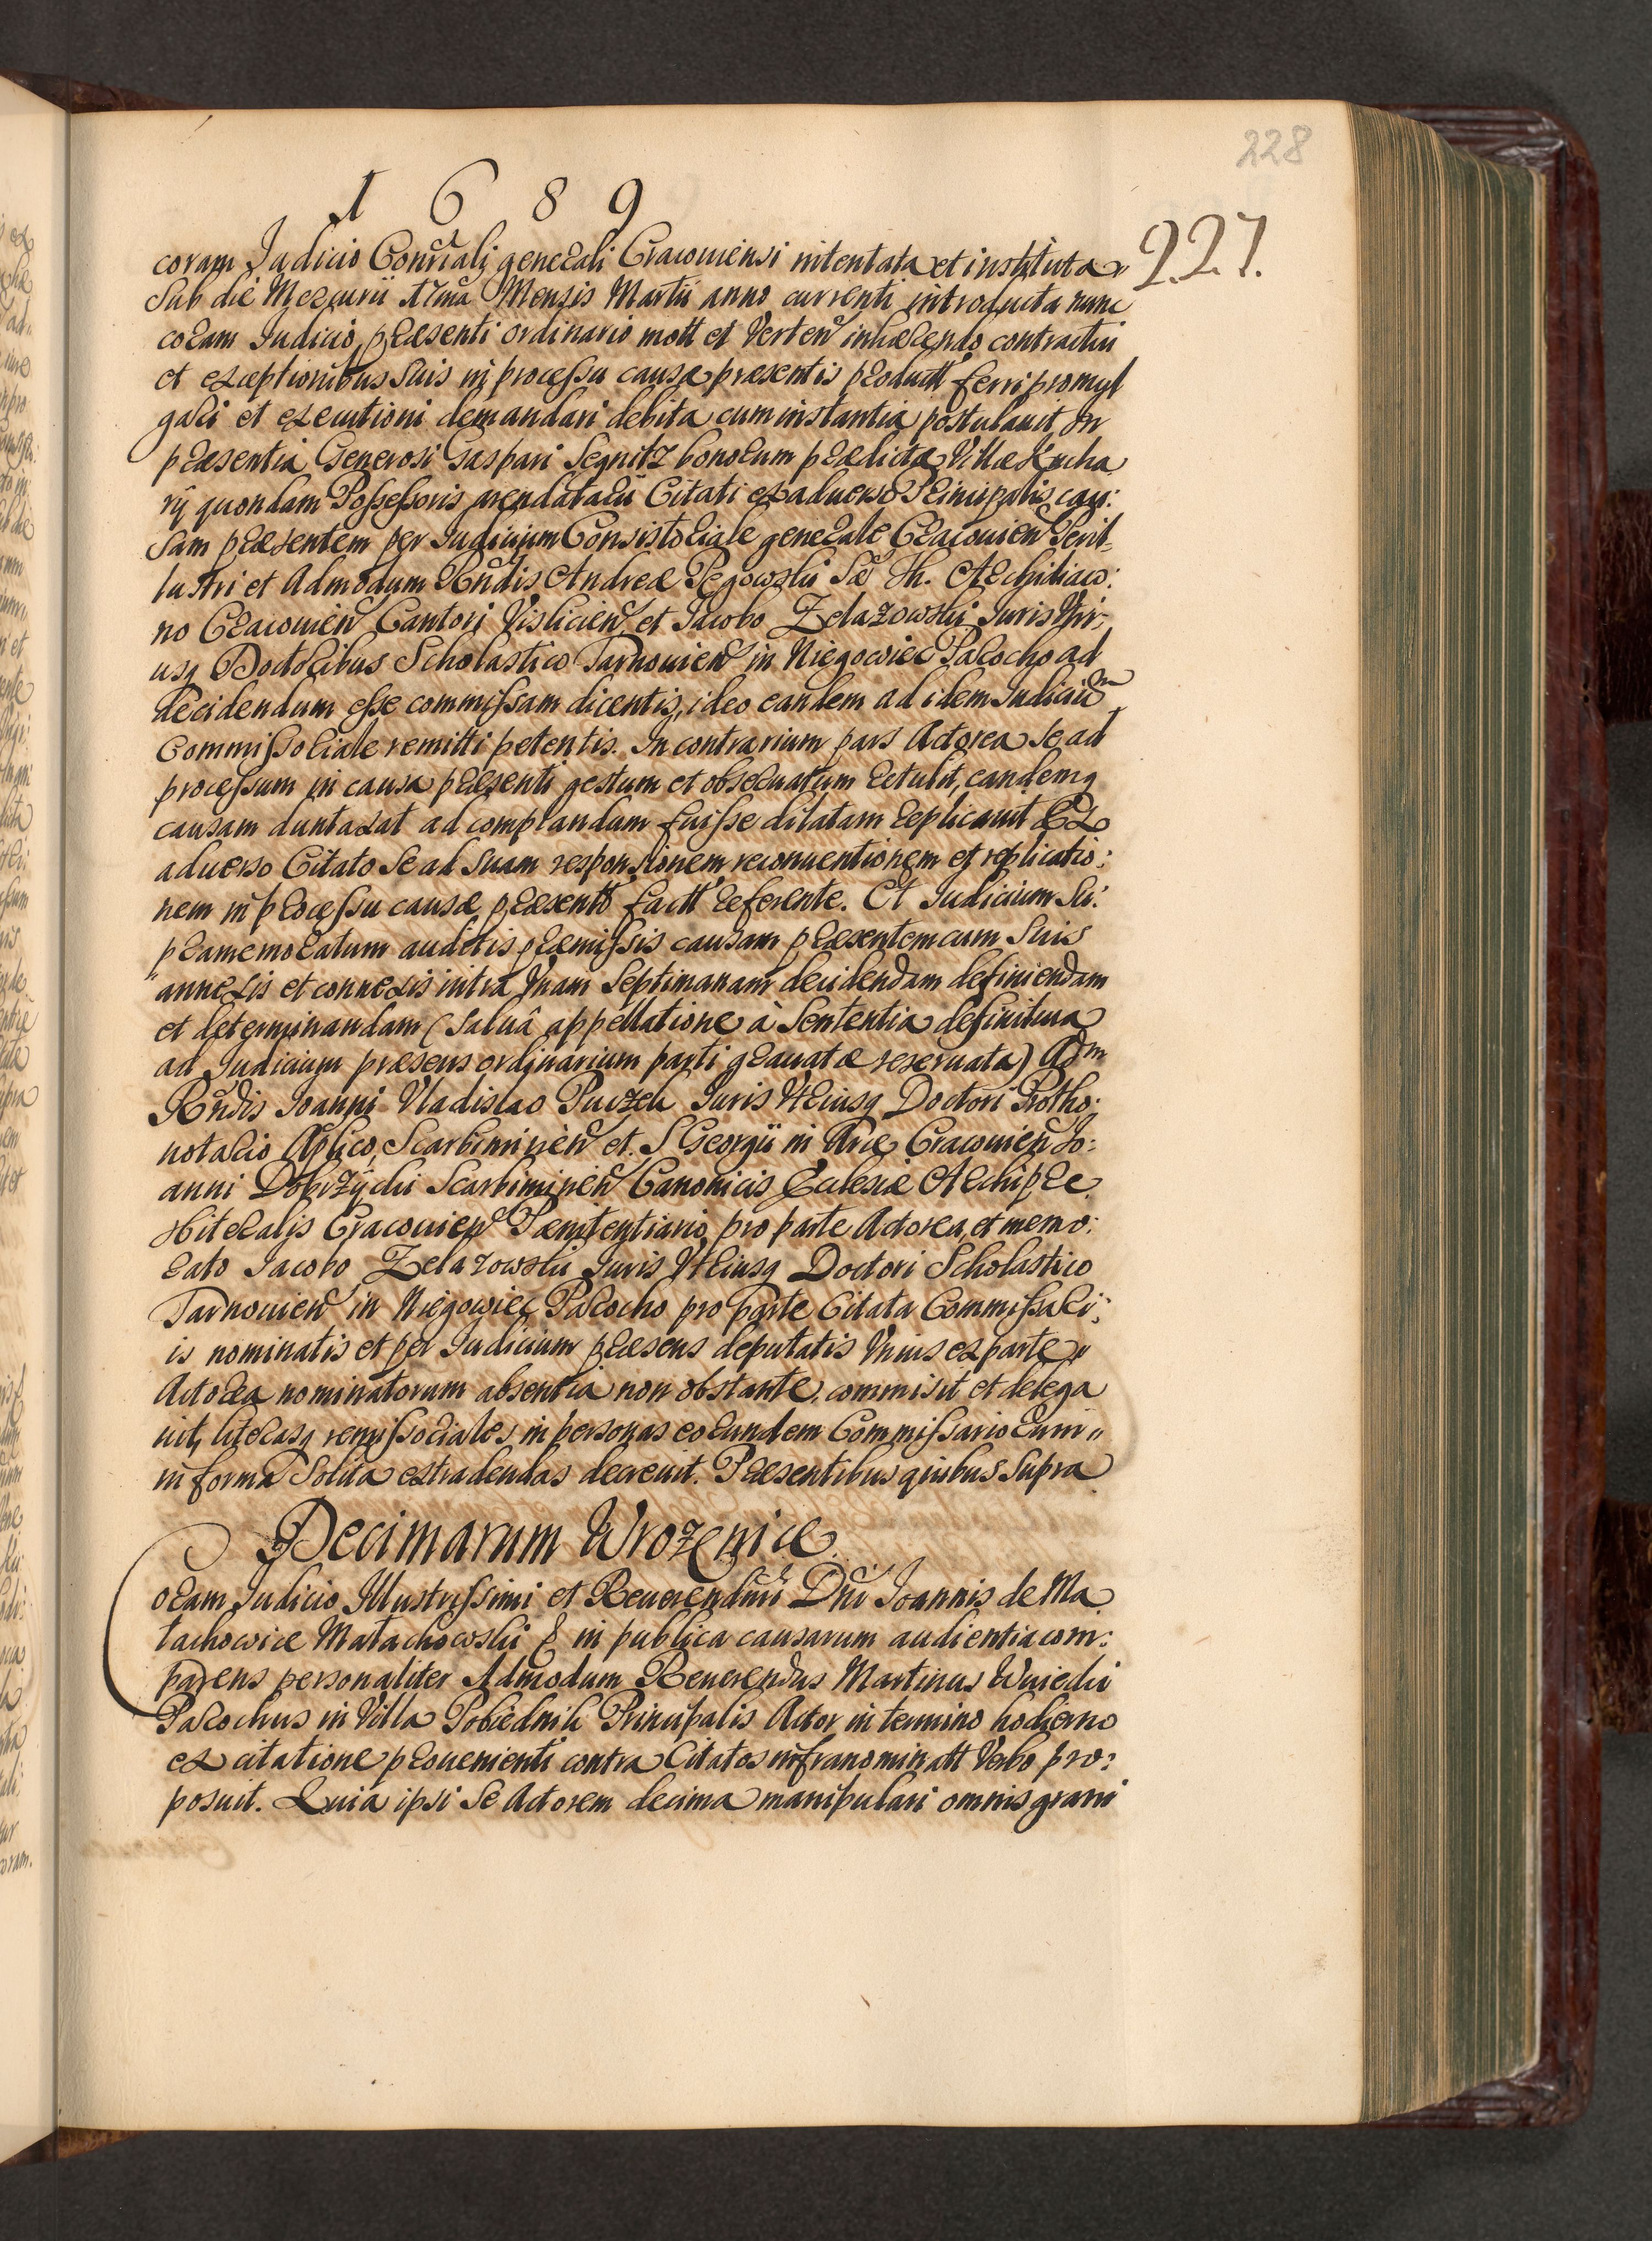 228
1 6 8 9
227.
coram Judicio Conrĩali generali Cracouiensi intentata et instituta
Sub die Mercurii Mensis Martii anno currenti introducta nunc
coram Judicio præsenti ordinario mott et Verteñ inhærendo contractui
et exceptionibus suis in processu causæ præsentis productt ferri promul
gari et executioni demandari debita cum instantia postulauit, In
præsentia Generosi Gaspari Segnitz bonorum prædictæ Villæ Kucha
rÿ quondam Possessoris arendatarii Citati ex aduerso Principalis cau:
sam præsentem per Judicium Consistoriale generale Cracouieñ Peril-
lustri et Admodum Rñdis Andreæ Pegowski Archidiaco:
no Cracouieñ Cantori Vislicieñ et Jacobo Zelazowski Juris Vtri-
usq Doctoribus Scholastico Tarnouieñ in Niegowiec Parocho ad
decidendum esse commissam dicentis, ideo eandem ad idem Judiciũ
Commissoriale remitti petentis. In contrarium pars Actorea se ad
processum in causa præsenti gestum et obseruatum retulit, eandemq
causam duntaxat ad complandum fuisse dilatam replicauit Ex
aduerso Citato se ad suam responsionem reconuentionem et replicatio:
nem in processu causæ præsentt factt referente. Et Judicium Su:
pramemoratum auditis præmissis causam præsentem cum suis
annexis et connexis intra Vnam Septimanam decidendam definiendam
et determinandam (saluâ appellatione à Sententia definitiua
ad Judicium præsens ordinarium parti grauatæ reseruata) Adm
Rñdis Joanni Vladislao Juris Vtriusq Doctori Protho:
notario Aplico, Scarbimirieñ et S Georgii in Arce Cracouieñ Jo:
anni Dobrzÿcki Scarbimirieñ Canonicis Eclesiæ Archipre
sbiteralis Cracouieñ Pænitentiario, pro parte Actorea, et memo:
rato Jacobo Zelazowski Juris Vtriusq Doctori Scholastico
Tarnouieñ in Niegowiec Parocho pro parte Citata Commissari:
is nominatis et per Judicium præsens deputatis Vnius ex parte
Actorea nominatorum absentia non obstante, commisit et delega
uit, literasq remissoriales in personas eorundem Commissariorum
in forma solita extradendas decreuit. Præsentibus quibus supra
Decimarum Wrozenice
Coram Judicio Illustrissimi et Reuerendmi Dñi Joannis de Ma
łachowice Małachowski & in publica causarum audientia com:
parens personaliter Admodum Reuerendus Martinus
Parochus in Villa Pobiednik Principalis Actor in termino hodierno
ex citatione prouenienti contra Citatos infranominatt Verbo pro:
posuit. Quia ipsi se Actorem decima manipulari omnis grani